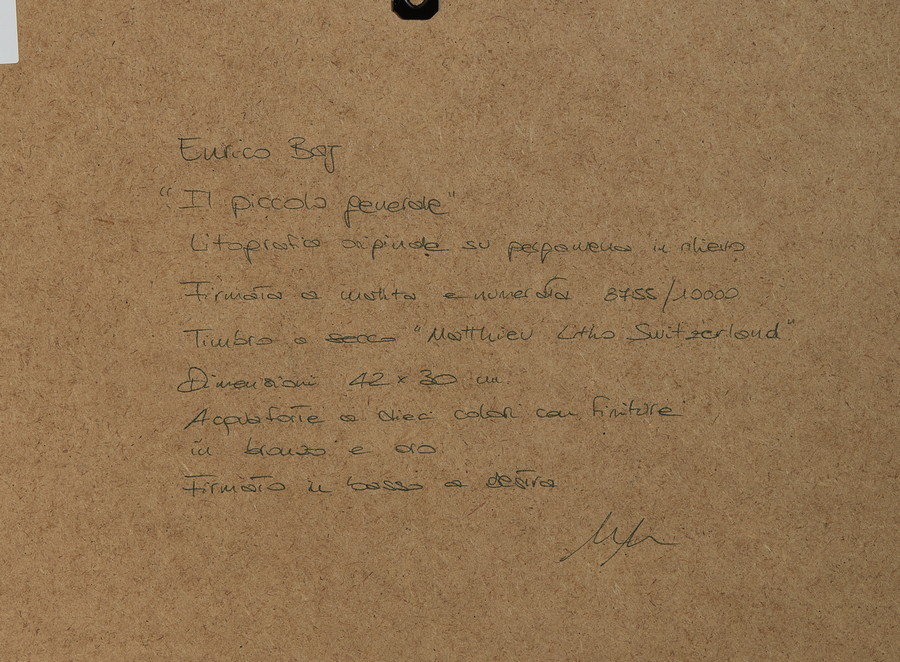 Enrico Baj
"Il piccolo generale"
Litografia originale su pergamena in rilievo
Firmata a matita e numerata 8755/10000
Timbro a secco "Matthieu Litho Switzerland"
Dimensioni 42 x 30 cm
Acquaforte a dieci colori con finiture
in bronzo e oro
Firmato in basso a destra